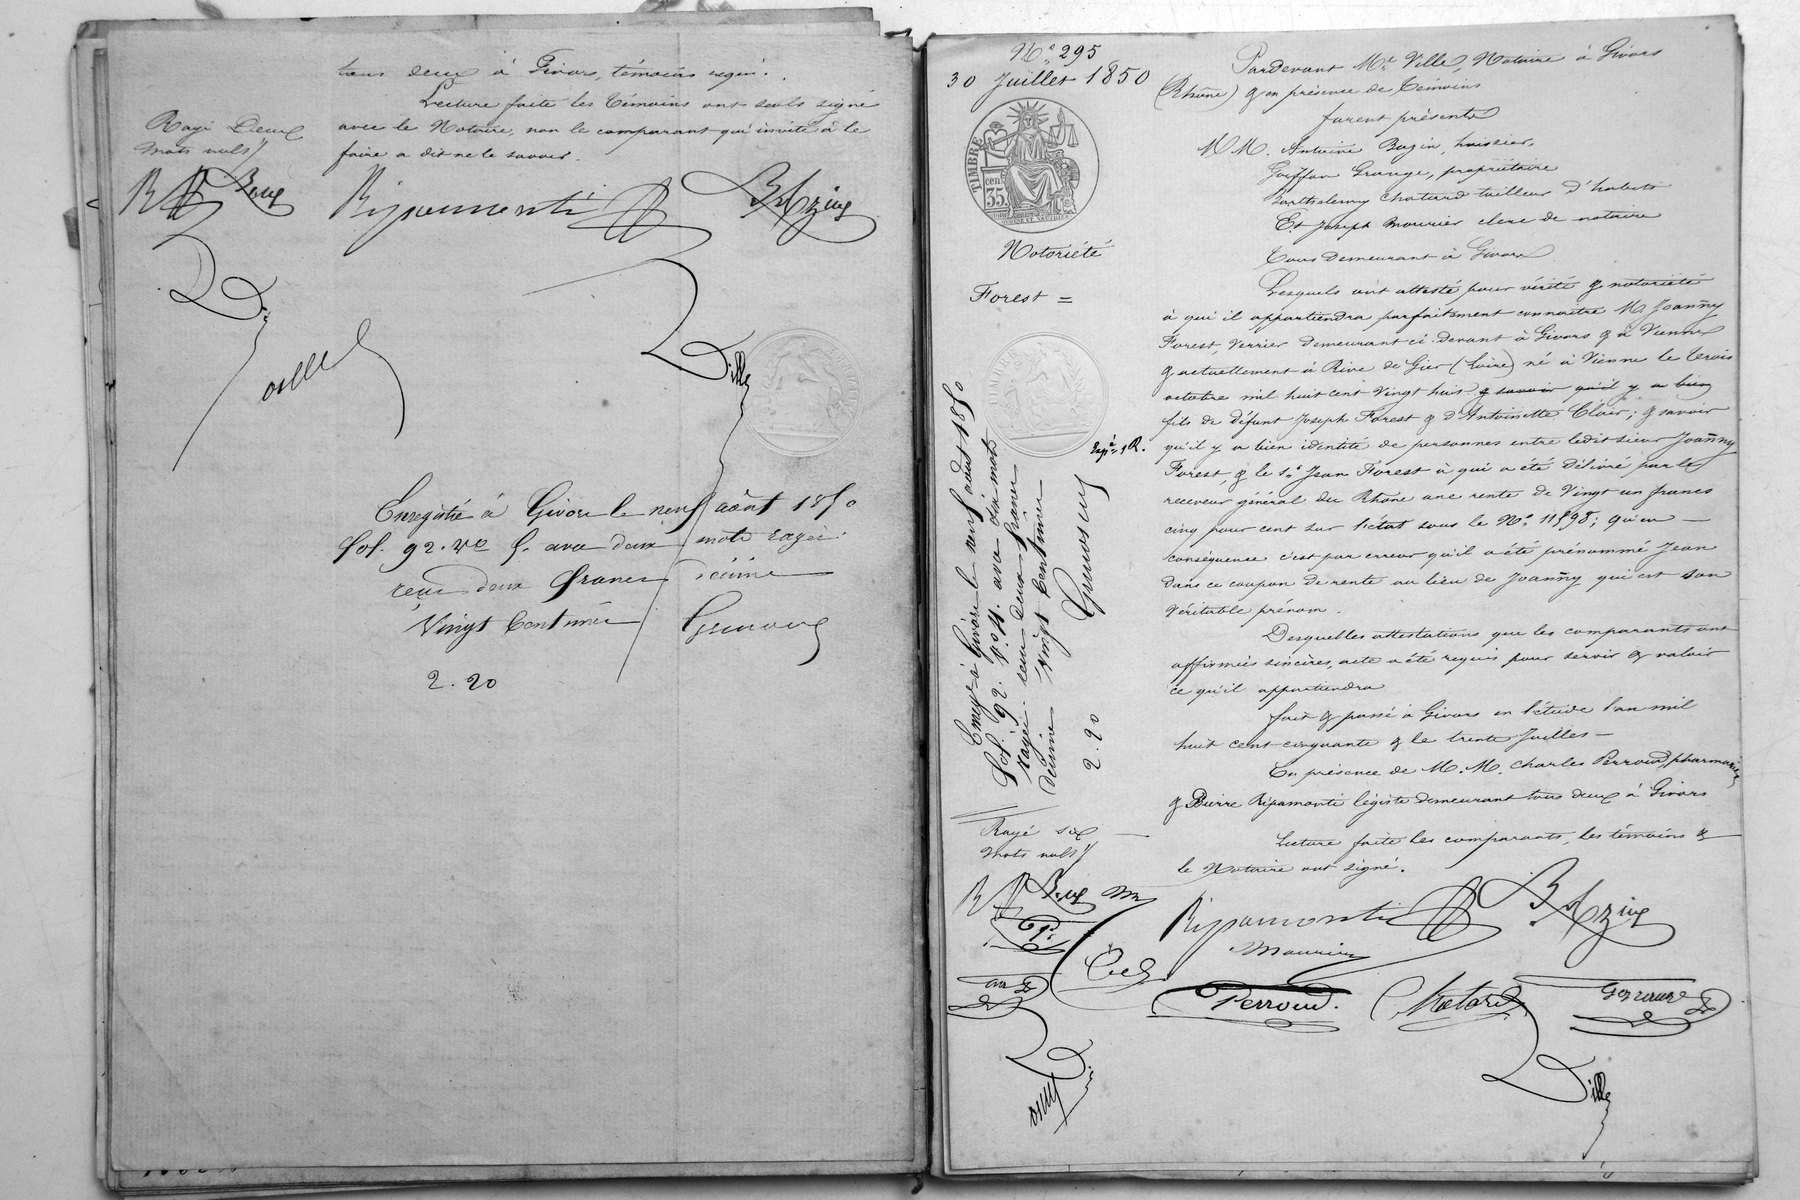 tous deux à Givors, témoins requis.
Lecture faite les Témoins ont seuls signé
avec le Notaire, non le comparant qui invité à le
faire a dit ne le savoir.
Rayé Deux
mots nuls
Ripamonti
Enregistré à Givors le neuf août 1850
fol. 92. Vo deux mots rayés
reçu deux francs décime
Vingt Centimes
2.20
No. 295
30 Juillet 1850
TIMBRE
35
Notoriété
Forest =
Pardevant Me. Ville, Notaire à Givors
(Rhône) & en présence de Témoins
furent présents
MM. Antoine Bazin, huissier,
Grange, propriétaire
Barthélemy Chatard tailleur d'habits
Et Joseph Mourier clerc de notaire
Tous Demeurant à Givors
Lesquels ont attesté pour vérité & notoriété
à qui il appartiendra parfaitement connaitre M. Joanny
Forest, Verrier demeurant ci-devant à Givors & à Vienne
& actuellement à Rive de Gier (Loire) né à Vienne le trois
octobre mil huit cent vingt huit & savoir qu'il y a bien
fils de défunt Joseph Forest & d'Antoinette Clair; & savoir
qu'il y a bien identité de personnes entre ledit sieur Joanny
Forest, & le Sr. Jean Forest à qui a été délivré par le
receveur général du Rhône une rente de Vingt un francs
cinq pour cent sur l'état sous le No. 11598; qu'en
conséquence c'est par erreur qu'il a été prénommé Jean
dans ce coupon de rente au lieu de Joanny qui est son
véritable prénom.
Desquelles attestations que les comparants ont
affirmées sincères, acte a été requis pour servir & valoir
ce qu'il appartiendra
fait & passé à Givors en l'étude l'an mil
huit cent cinquante & le trente Juillet
En présence de M.M. Charles Perroud, pharmacien
& Pierre Ripamonti légiste demeurant tous deux à Givors
Lecture faite les comparants, les témoins &
le Notaire ont signé.
Enregé à Givors le neuf août 1850
fol. 92. Ro
rayés reçu deux francs
décime Vingt Centimes
2.20
Rayé six
mots nuls
Ripamonti
Mourier
Perroud.
Chatard
Ville